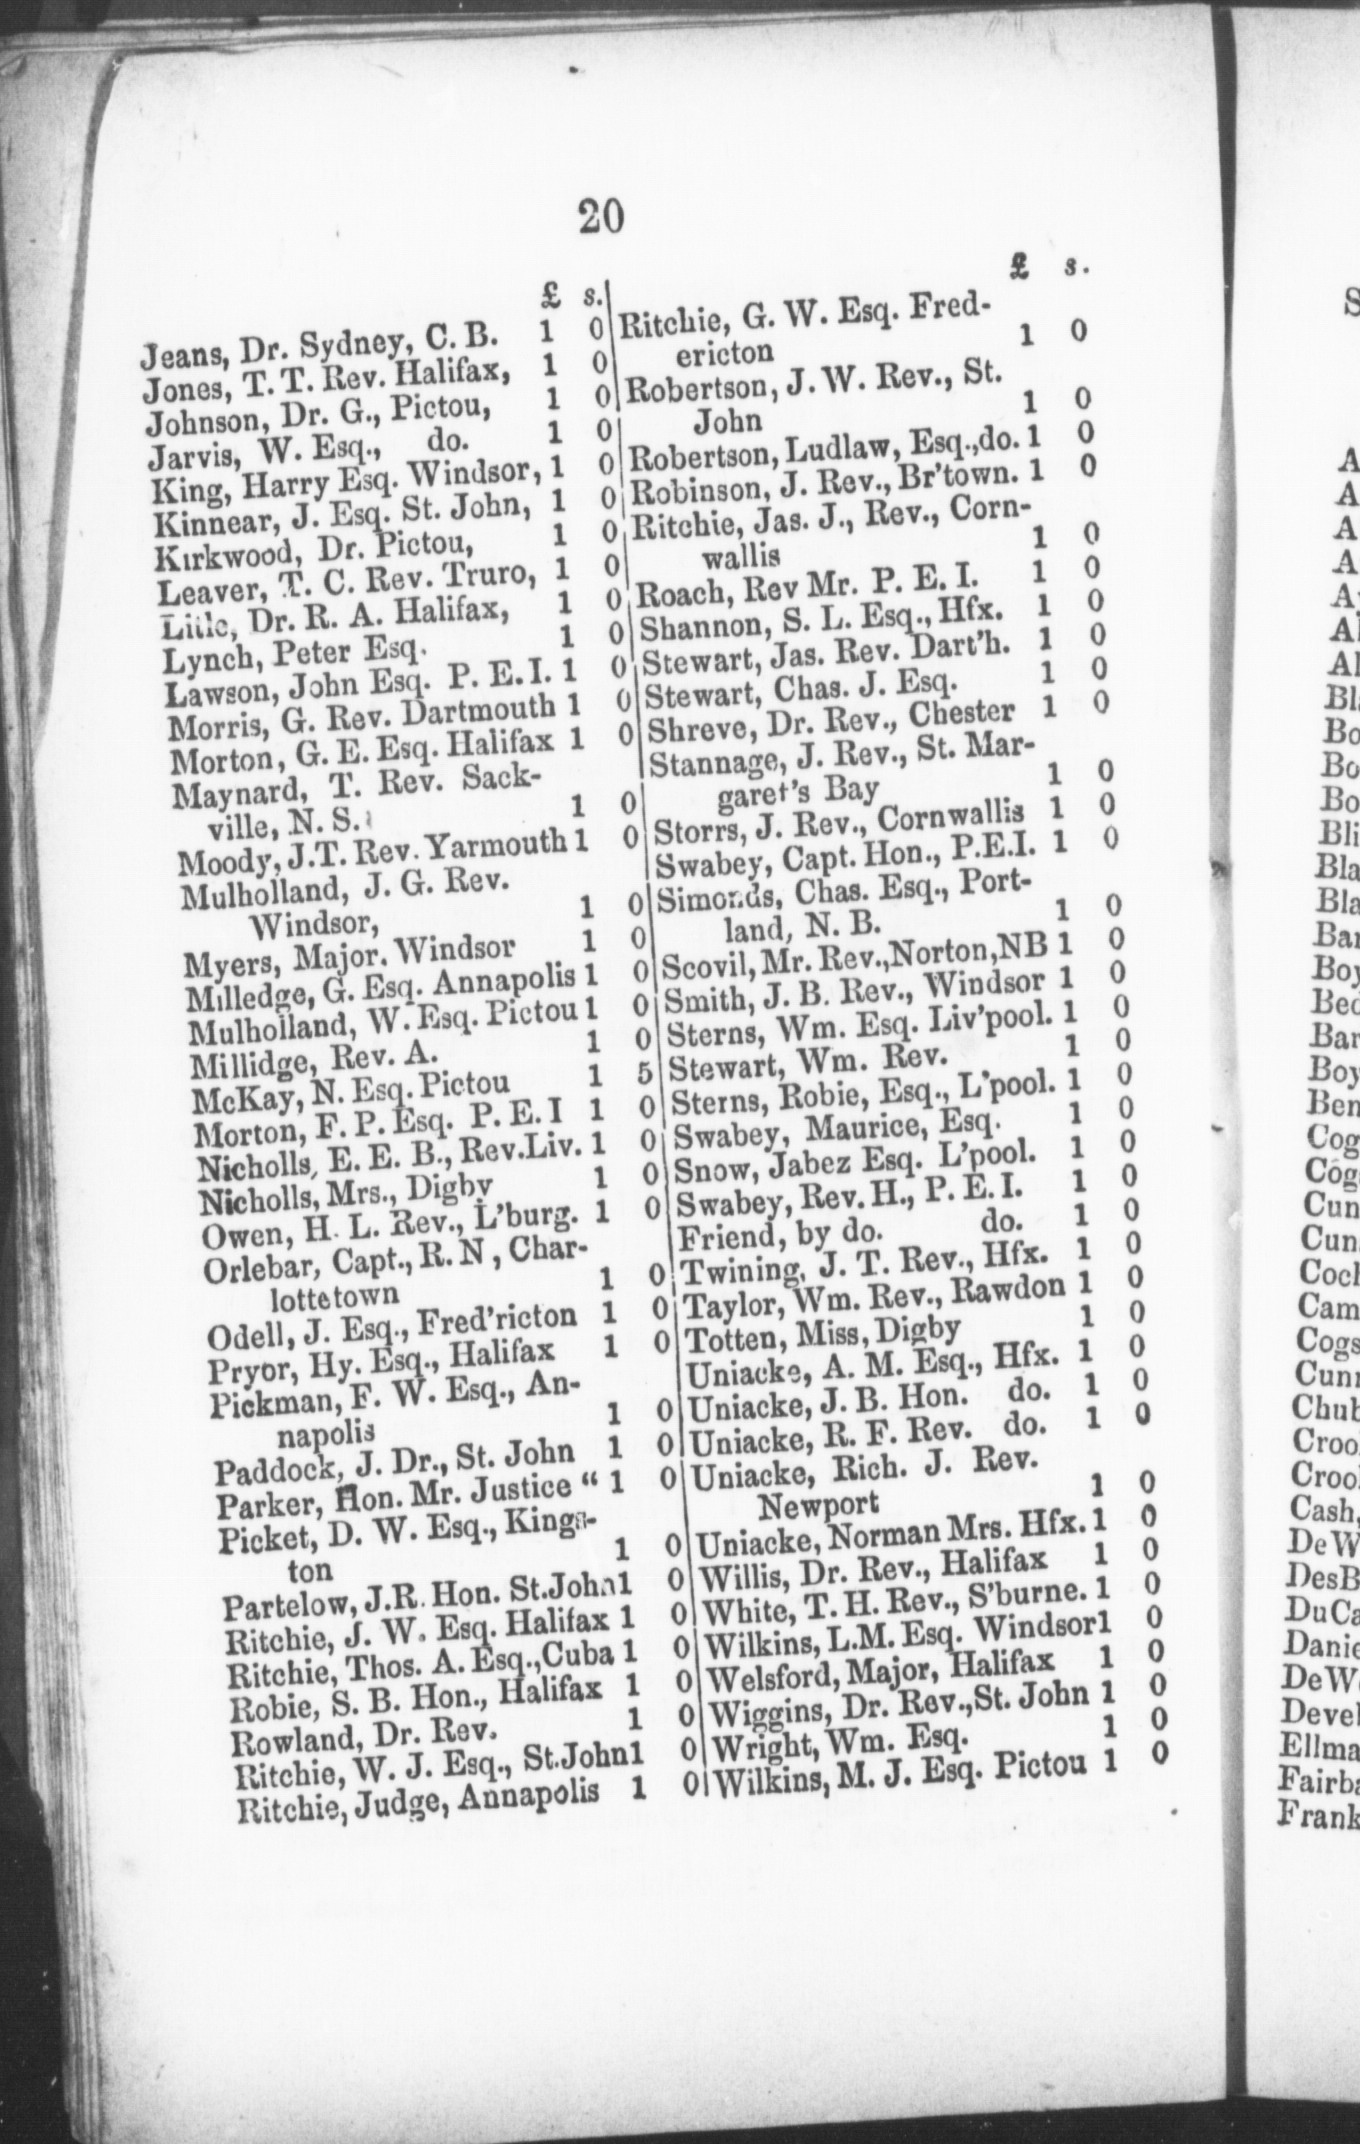 20
£ s.
Jeans, Dr. Sydney, C. B. 1 0
Jones, T. T. Rev. Halifax, 1 0
Johnson, Dr. G., Pictou, 1 0
Jarvis, W. Esq., do. 1 0
King, Harry Esq. Windsor, 1 0
Kinnear, J. Esq. St. John, 1 0
Kirkwood, Dr. Pictou, 1 0
Leaver, T. C. Rev. Truro, 1 0
Little, Dr. R. A. Halifax, 1 0
Lynch, Peter Esq. 1 0
Lawson, John Esq. P. E. I. 1 0
Morris, G. Rev. Dartmouth 1 0
Morton, G. E. Esq. Halifax 1 0
Maynard, T. Rev. Sack-
ville, N. S. 1 0
Moody, J.T. Rev. Yarmouth 1 0
Mulholland, J. G. Rev.
Windsor, 1 0
Myers, Major. Windsor 1 0
Milledge, G. Esq. Annapolis 1 0
Mulholland, W. Esq. Pictou 1 0
Millidge, Rev. A. 1 0
McKay, N. Esq. Pictou 1 5
Morton, F. P. Esq. P. E. I 1 0
Nicholls, E. E. B., Rev.Liv. 1 0
Nicholls, Mrs., Digby 1 0
Owen, H. L. Rev., L'burg. 1 0
Orlebar, Capt., R. N, Char-
lottetown 1 0
Odell, J. Esq., Fred'ricton 1 0
Pryor, Hy. Esq., Halifax 1 0
Pickman, F. W. Esq., An-
napolis 1 0
Paddock, J. Dr., St. John 1 0
Parker, Hon. Mr. Justice " 1 0
Picket, D. W. Esq., Kings-
ton 1 0
Partelow, J.R. Hon. St.John 1 0
Ritchie, J. W. Esq. Halifax 1 0
Ritchie, Thos. A. Esq.,Cuba 1 0
Robie, S. B. Hon., Halifax 1 0
Rowland, Dr. Rev. 1 0
Ritchie, W. J. Esq., St.John 1 0
Ritchie, Judge, Annapolis 1 0
£ s.
Ritchie, G. W. Esq. Fred-
ericton 1 0
Robertson, J. W. Rev., St.
John 1 0
Robertson, Ludlaw, Esq.,do. 1 0
Robinson, J. Rev., Br'town. 1 0
Ritchie, Jas. J., Rev., Corn-
wallis 1 0
Roach, Rev Mr. P. E. I. 1 0
Shannon, S. L. Esq., Hfx. 1 0
Stewart, Jas. Rev. Dart'h. 1 0
Stewart, Chas. J. Esq. 1 0
Shreve, Dr. Rev., Chester 1 0
Stannage, J. Rev., St. Mar-
garet's Bay 1 0
Storrs, J. Rev., Cornwallis 1 0
Swabey, Capt. Hon., P.E.I. 1 0
Simonds, Chas. Esq., Port-
land, N. B. 1 0
Scovil, Mr. Rev.,Norton,NB 1 0
Smith, J. B. Rev., Windsor 1 0
Sterns, Wm. Esq. Liv'pool. 1 0
Stewart, Wm. Rev. 1 0
Sterns, Robie, Esq., L'pool. 1 0
Swabey, Maurice, Esq. 1 0
Snow, Jabez Esq. L'pool. 1 0
Swabey, Rev. H., P. E. I. 1 0
Friend, by do. do. 1 0
Twining, J. T. Rev., Hfx. 1 0
Taylor, Wm. Rev., Rawdon 1 0
Totten, Miss, Digby 1 0
Uniacke, A. M. Esq., Hfx. 1 0
Uniacke, J. B. Hon. do. 1 0
Uniacke, R. F. Rev. do. 1 0
Uniacke, Rich. J. Rev.
Newport 1 0
Uniacke, Norman Mrs. Hfx. 1 0
Willis, Dr. Rev., Halifax 1 0
White, T. H. Rev., S'burne. 1 0
Wilkins, L.M. Esq. Windsor 1 0
Welsford, Major, Halifax 1 0
Wiggins, Dr. Rev.,St. John 1 0
Wright, Wm. Esq. 1 0
Wilkins, M. J. Esq. Pictou 1 0